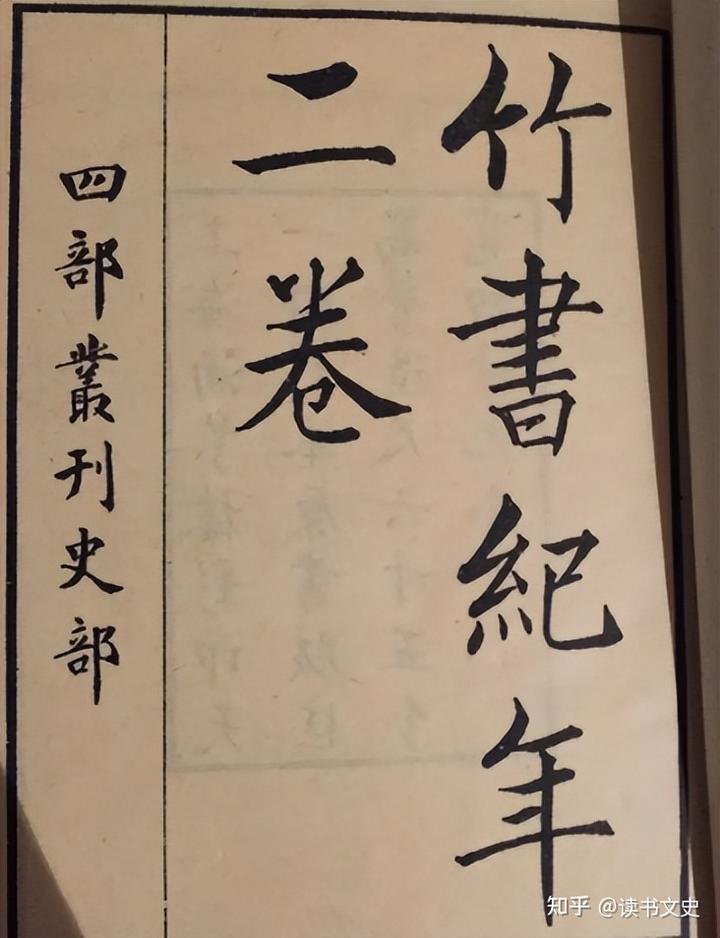 竹書紀年
二卷
四部叢刊史部
知乎 @读书文史